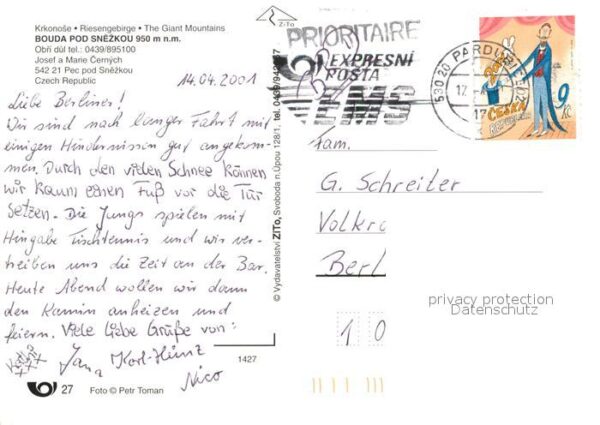 Krkonoše • Riesengebirge • The Giant Mountains
BOUDA POD SNĚŽKOU 950 m n.m.
Obří důl tel.: 0439/895100
Josef a Marie Černých
542 21 Pec pod Sněžkou
Czech Republic
14.04.2001
Liebe Berliner!
Wir sind nach langer Fahrt mit
einigen Hindernissen gut angekom-
men. Durch den vielen Schnee können
wir kaum einen Fuß vor die Tür
setzen. Die Jungs spielen mit
Hingabe Tischtennis und wir ver-
treiben uns die Zeit an der Bar.
Heute Abend wollen wir dann
den Kamin anheizen und
feiern. Viele liebe Grüße von:
Jana Karl-Heinz
Nico
27
Foto © Petr Toman
1427
ZiTo
© Vydavatelství ZiTo, Svoboda n.Úpou 128/1, tel. 0439/
PRIORITAIRE
EXPRESNÍ
POŠTA
EMS
530 20 PARDUBICE 02
ČESKÁ
REPUBLIKA
9 Kč
Fam.
G. Schreiter
Volkr
Berl
1 0
privacy protection
Datenschutz